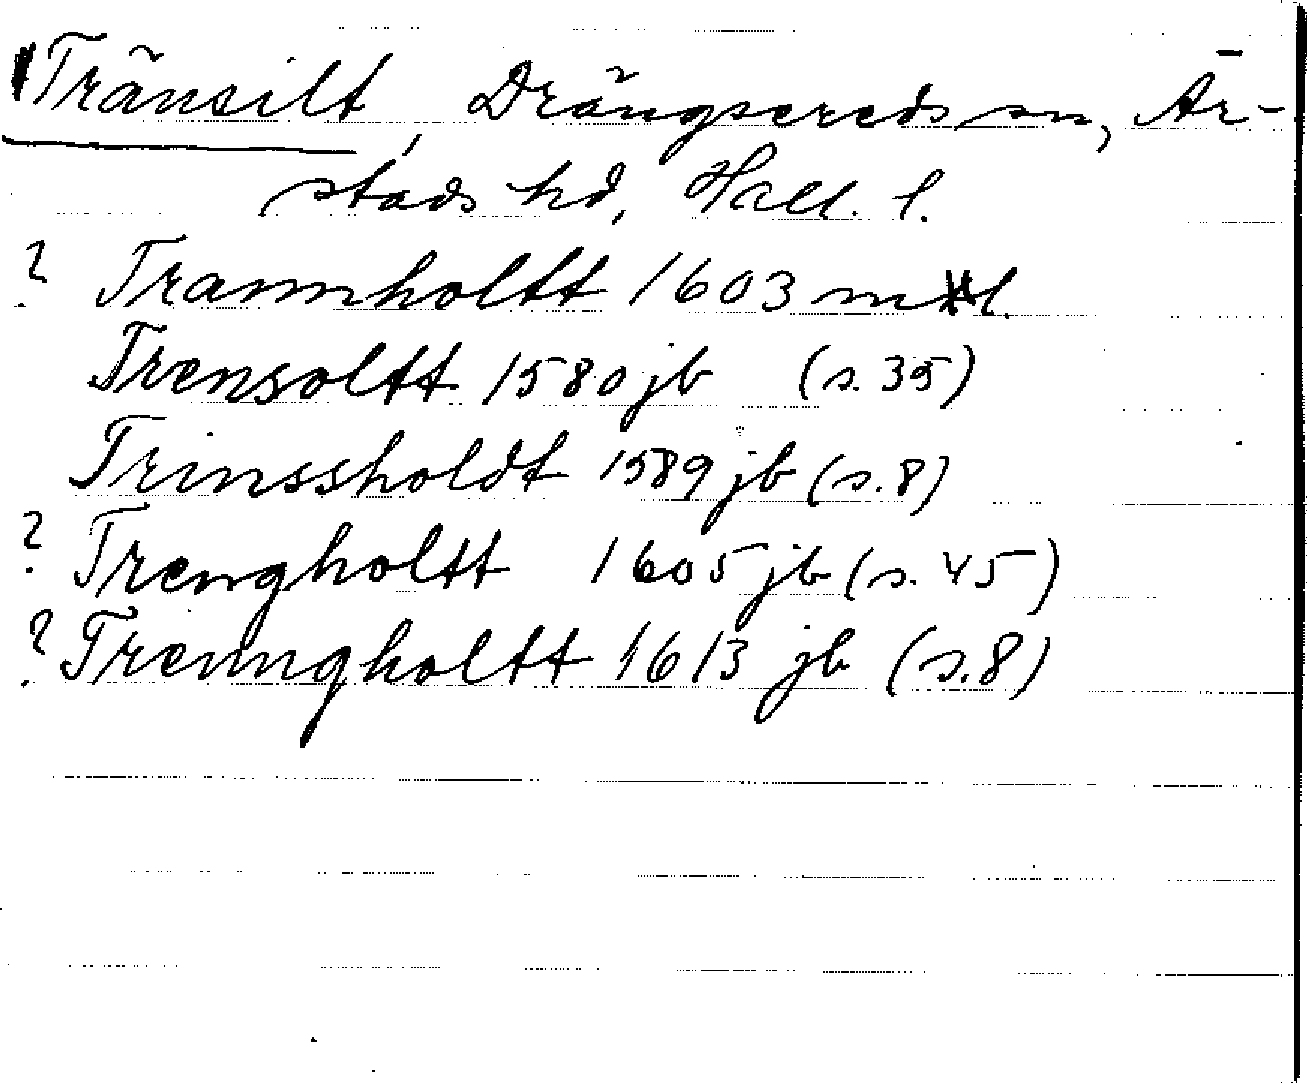 Tränsilt, Drängsereds sn, År-
stads hd, Hall. l.
? Trannholtt 1603 mtl.
Trensoltt 1580 jb (s. 35)
Trinssholdt 1589 jb (s. 8)
? Trengholtt 1605 jb (s. 45)
? Trenngholtt 1613 jb (s. 8)